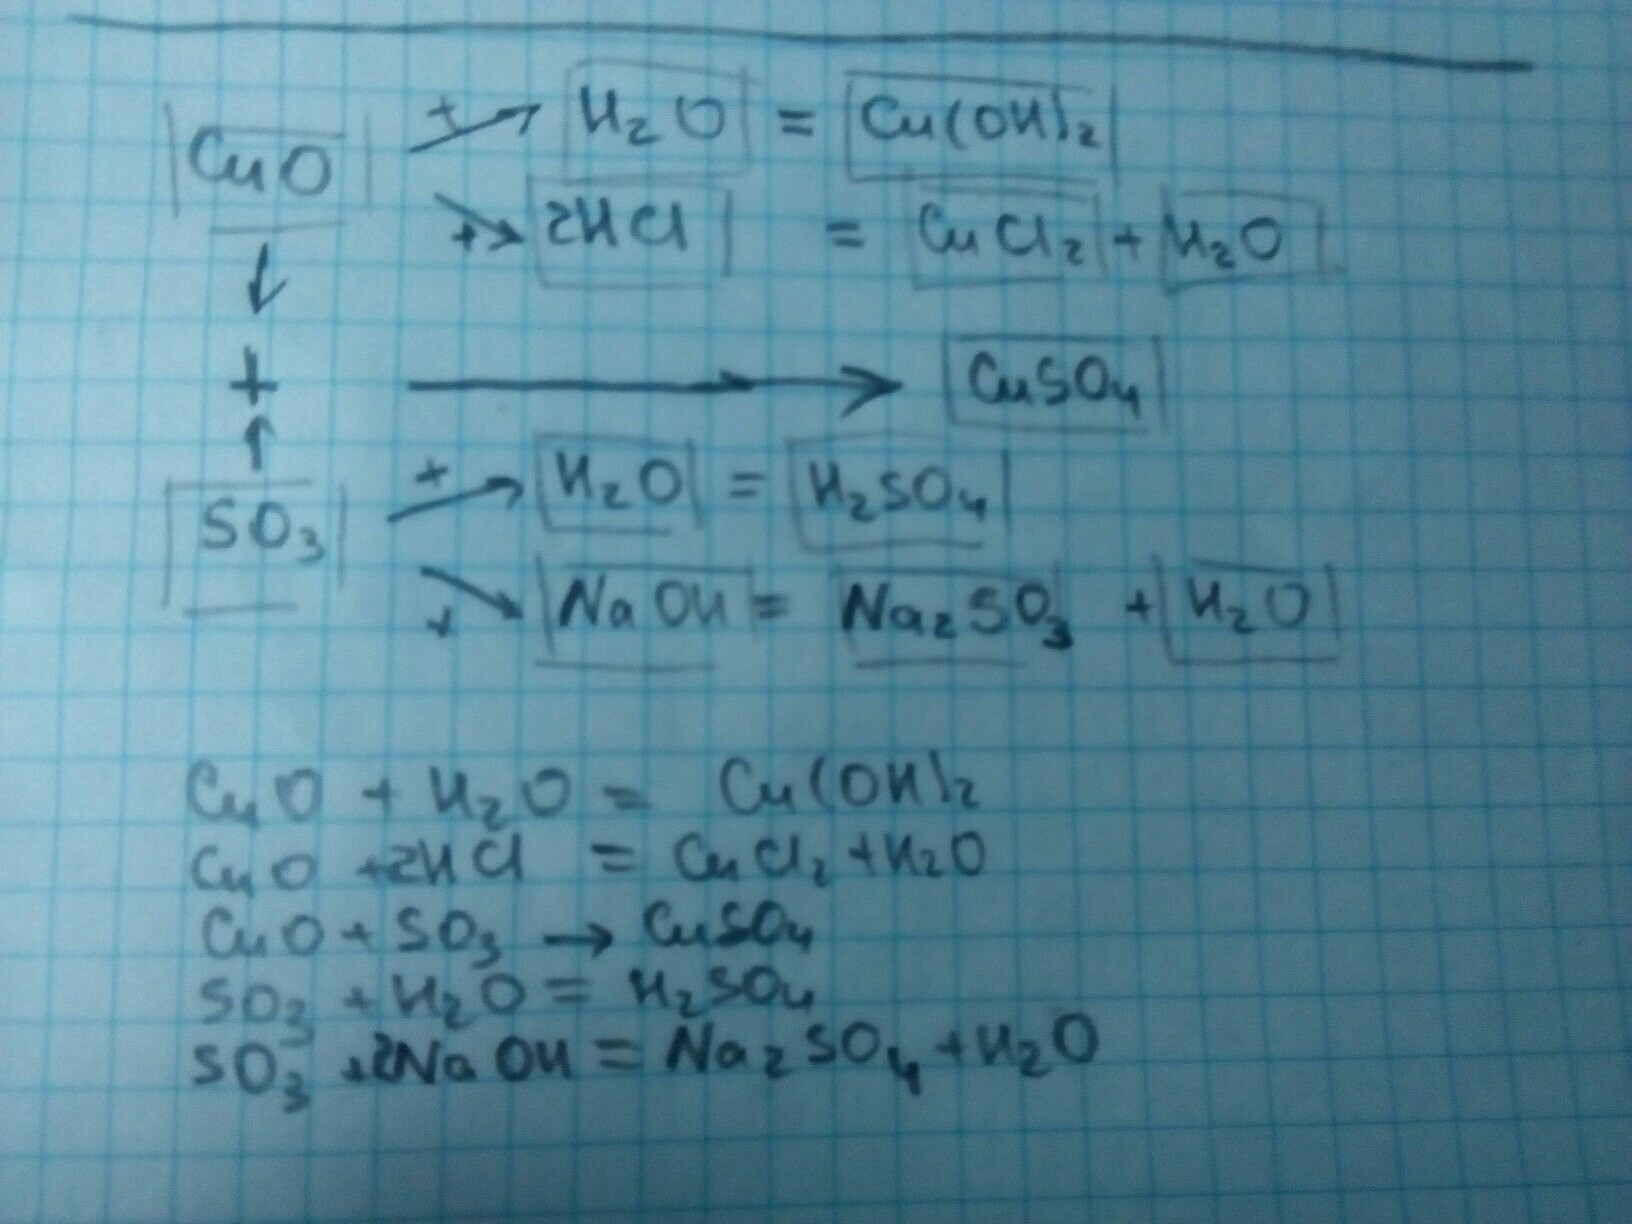 CuO + → H₂O = Cu(OH)₂
+ → 2HCl = CuCl₂ + H₂O
↓
+ → CuSO₄
↑
SO₃ + → H₂O = H₂SO₄
+ → NaOH = Na₂SO₃ + H₂O
CuO + H₂O = Cu(OH)₂
CuO + 2HCl = CuCl₂ + H₂O
CuO + SO₃ → CuSO₄
SO₃ + H₂O = H₂SO₄
SO₃ + 2NaOH = Na₂SO₄ + H₂O